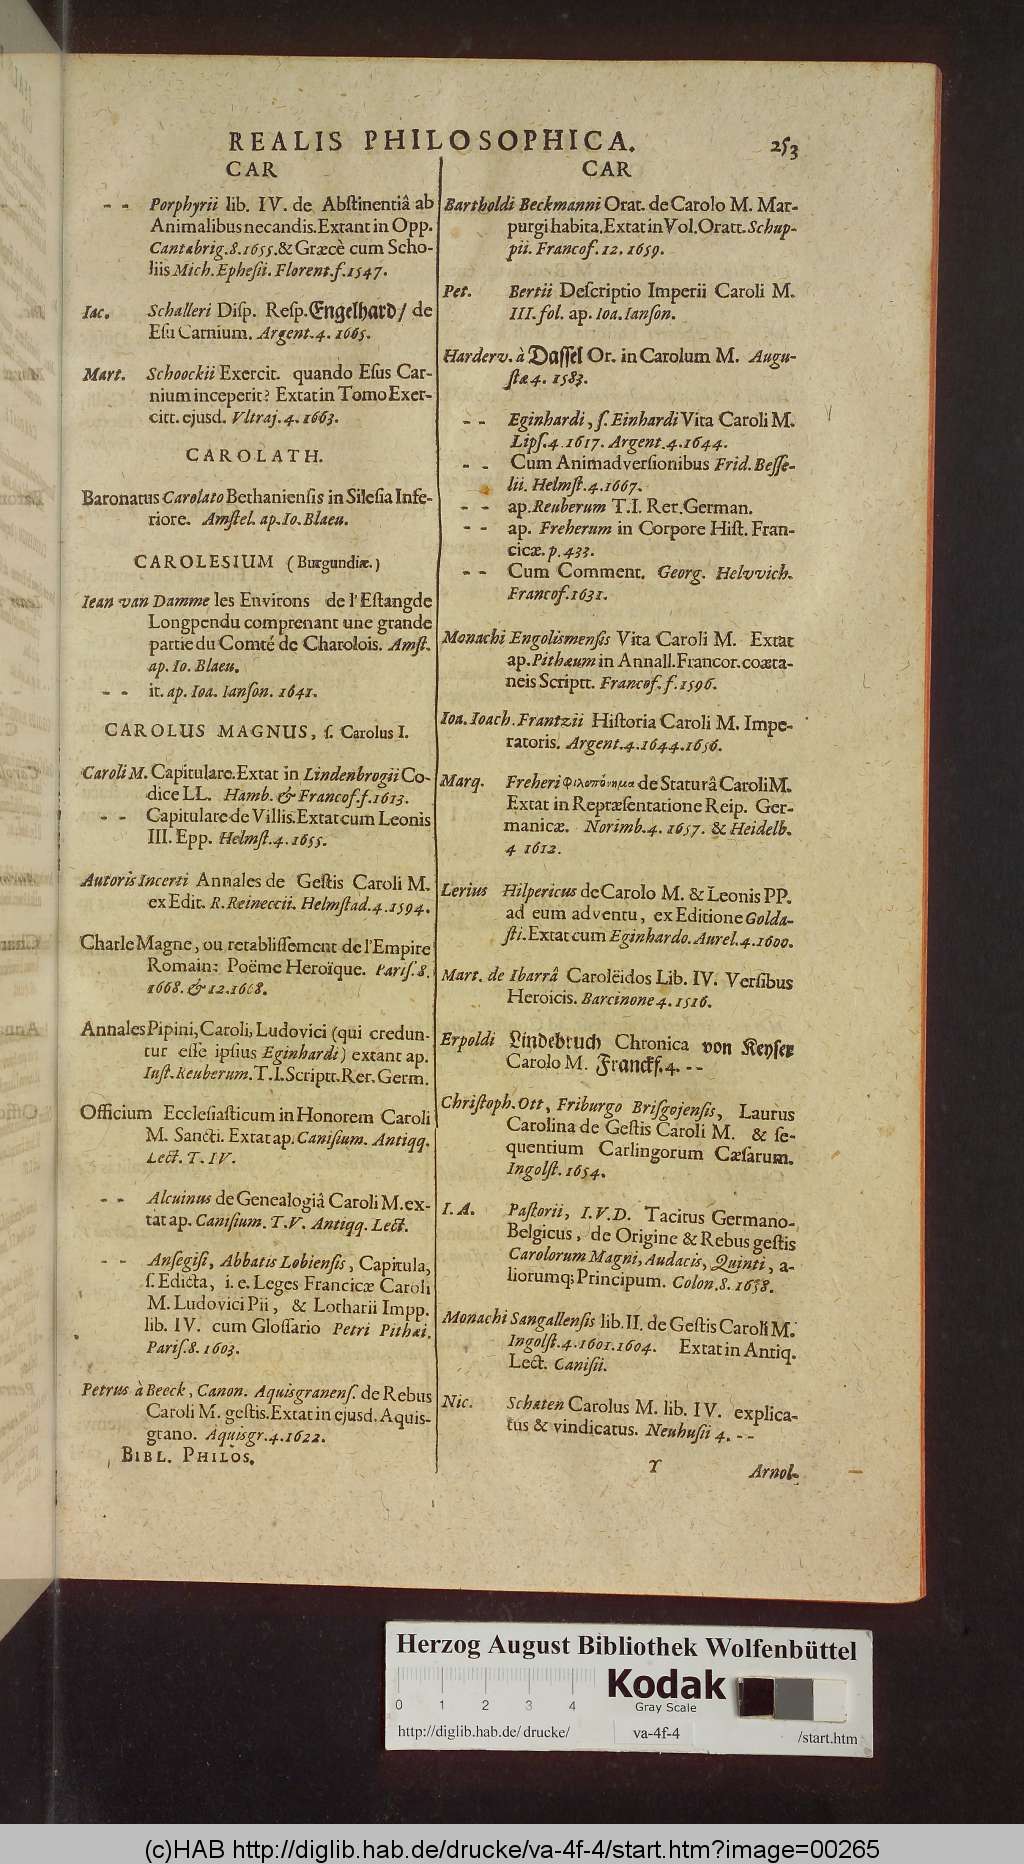 REALIS PHILOSOPHICA. 253
CAR
- - Porphyrii lib. IV. de Abſtinentiâ ab
Animalibus necandis. Extant in Opp.
Cantabrig. 8. 1655. & Græcè cum Scho-
liis Mich. Epheſii. Florent. f. 1547.
Iac. Schalleri Diſp. Reſp. Engelhard/ de
Eſu Carnium. Argent. 4. 1665.
Mart. Schoockii Exercit. quando Eſus Car-
nium inceperit? Extat in Tomo Exer-
citt. ejusd. Vltraj. 4. 1663.
CAROLATH.
Baronatus Carolato Bethanienſis in Sileſia Infe-
riore. Amſtel. ap. Io. Blaeu.
CAROLESIUM (Burgundiæ.)
Iean van Damme les Environs de l'Eſtangde
Longpendu comprenant une grande
partie du Comté de Charolois. Amſt.
ap. Io. Blaeu.
- - it. ap. Ioa. Ianſon. 1641.
CAROLUS MAGNUS, ſ. Carolus I.
Caroli M. Capitulare. Extat in Lindenbrogii Co-
dice LL. Hamb. & Francof. f. 1613.
- - Capitulare de Villis. Extat cum Leonis
III. Epp. Helmſt. 4. 1655.
Autoris Incerti Annales de Geſtis Caroli M.
ex Edit. R. Reineccii. Helmſtad. 4. 1594.
Charle Magne, ou retabliſſement de l'Empire
Romain: Poëme Heroïque. Pariſ. 8.
1668. & 12. 1668.
Annales Pipini, Caroli, Ludovici (qui credun-
tur eſſe ipſius Eginhardi) extant ap.
Iuſt. Reuberum. T. I. Scriptt. Rer. Germ.
Officium Eccleſiaſticum in Honorem Caroli
M. Sancti. Extat ap. Caniſium. Antiqq.
Lect. T. IV.
- - Alcuinus de Genealogiâ Caroli M. ex-
tat ap. Caniſium. T. V. Antiqq. Lect.
- - Anſegiſi, Abbatis Lobienſis, Capitula,
ſ. Edicta, i. e. Leges Francicæ Caroli
M. Ludovici Pii, & Lotharii Impp.
lib. IV. cum Gloſſario Petri Pithæi.
Pariſ. 8. 1603.
Petrus à Beeck, Canon. Aquisgranenſ. de Rebus
Caroli M. geſtis. Extat in ejusd. Aquis-
grano. Aquisgr. 4. 1622.
BIBL. PHILOS.
CAR
Bartholdi Beckmanni Orat. de Carolo M. Mar-
purgi habita. Extat in Vol. Oratt. Schup-
pii. Francof. 12. 1659.
Pet. Bertii Deſcriptio Imperii Caroli M.
III. fol. ap. Ioa. Ianſon.
Harderv. à Daſſel Or. in Carolum M. Augu-
ſtæ 4. 1583.
- - Eginhardi, ſ. Einhardi Vita Caroli M.
Lipſ. 4. 1617. Argent. 4. 1644.
- - Cum Animadverſionibus Frid. Beſſe-
lii. Helmſt. 4. 1667.
- - ap. Reuberum T. I. Rer. German.
- - ap. Freherum in Corpore Hiſt. Fran-
cicæ. p. 433.
- - Cum Comment. Georg. Helvvich.
Francof. 1631.
Monachi Engolismenſis Vita Caroli M. Extat
ap. Pithæum in Annall. Francor. coæta-
neis Scriptt. Francof. f. 1596.
Ioa. Ioach. Frantzii Hiſtoria Caroli M. Impe-
ratoris. Argent. 4. 1644. 1656.
Marq. Freheri Φιλοπόνημα de Staturâ Caroli M.
Extat in Repræſentatione Reip. Ger-
manicæ. Norimb. 4. 1657. & Heidelb.
4 1612.
Lerius Hilpericus de Carolo M. & Leonis PP.
ad eum adventu, ex Editione Golda-
ſti. Extat cum Eginhardo. Aurel. 4. 1600.
Mart. de Ibarrâ Caroleïdos Lib. IV. Verſibus
Heroicis. Barcinone 4. 1516.
Erpoldi Lindebruch Chronica von Keyſer
Carolo M. Franckf. 4. - -
Chriſtoph. Ott, Friburgo Briſgojenſis, Laurus
Carolina de Geſtis Caroli M. & ſe-
quentium Carlingorum Cæſarum.
Ingolſt. 1654.
I. A. Paſtorii, I. V. D. Tacitus Germano-
Belgicus, de Origine & Rebus geſtis
Carolorum Magni, Audacis, Quinti, a-
liorumq; Principum. Colon. 8. 1658.
Monachi Sangallenſis lib. II. de Geſtis Caroli M.
Ingolſt. 4. 1601. 1604. Extat in Antiq.
Lect. Caniſii.
Nic. Schaten Carolus M. lib. IV. explica-
tus & vindicatus. Neuhuſii 4. - -
Y Arnol-
Herzog August Bibliothek Wolfenbüttel
0 1 2 3 4
Kodak
Gray Scale
http://diglib.hab.de/drucke/ va-4f-4 /start.htm
(c)HAB http://diglib.hab.de/drucke/va-4f-4/start.htm?image=00265